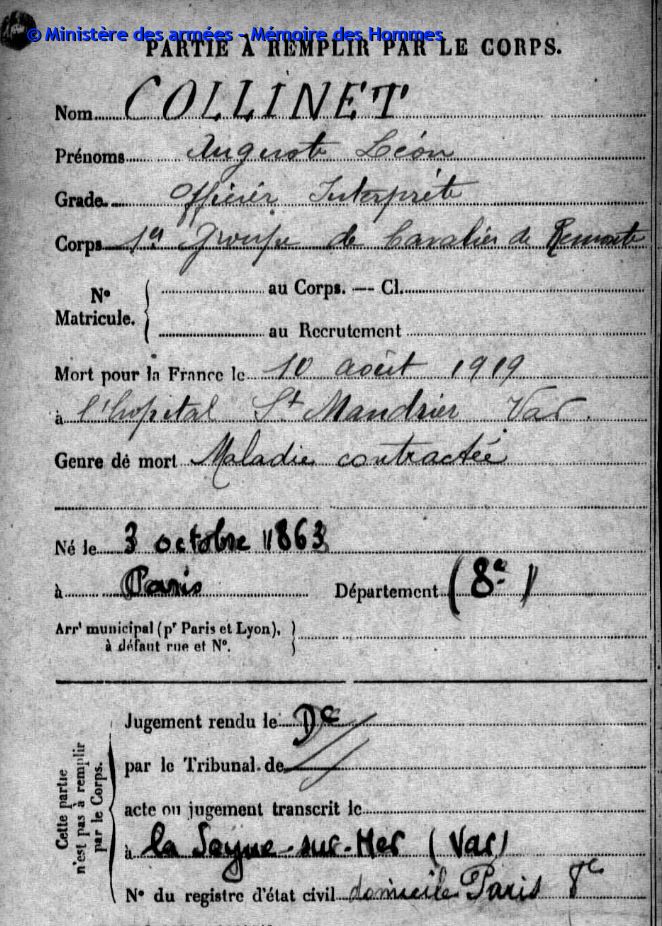 © Ministère des armées - Mémoire des Hommes
PARTIE À REMPLIR PAR LE CORPS.
Nom COLLINET
Prénoms Auguste Léon
Grade Officier Interprète
Corps 1er Groupe de Cavaliers de Remonte
N° Matricule. { au Corps. — Cl.
au Recrutement
Mort pour la France le 10 août 1919
à l'hôpital St Mandrier Var.
Genre de mort Maladie contractée
Né le 3 octobre 1863
à Paris Département (8e)
Arrt municipal (pr Paris et Lyon), }
à défaut rue et N°.
Cette partie
n'est pas à remplir
par le Corps.
Jugement rendu le De
par le Tribunal de
acte ou jugement transcrit le
à la Seyne-sur-Mer (Var)
N° du registre d'état civil domicile Paris 8e